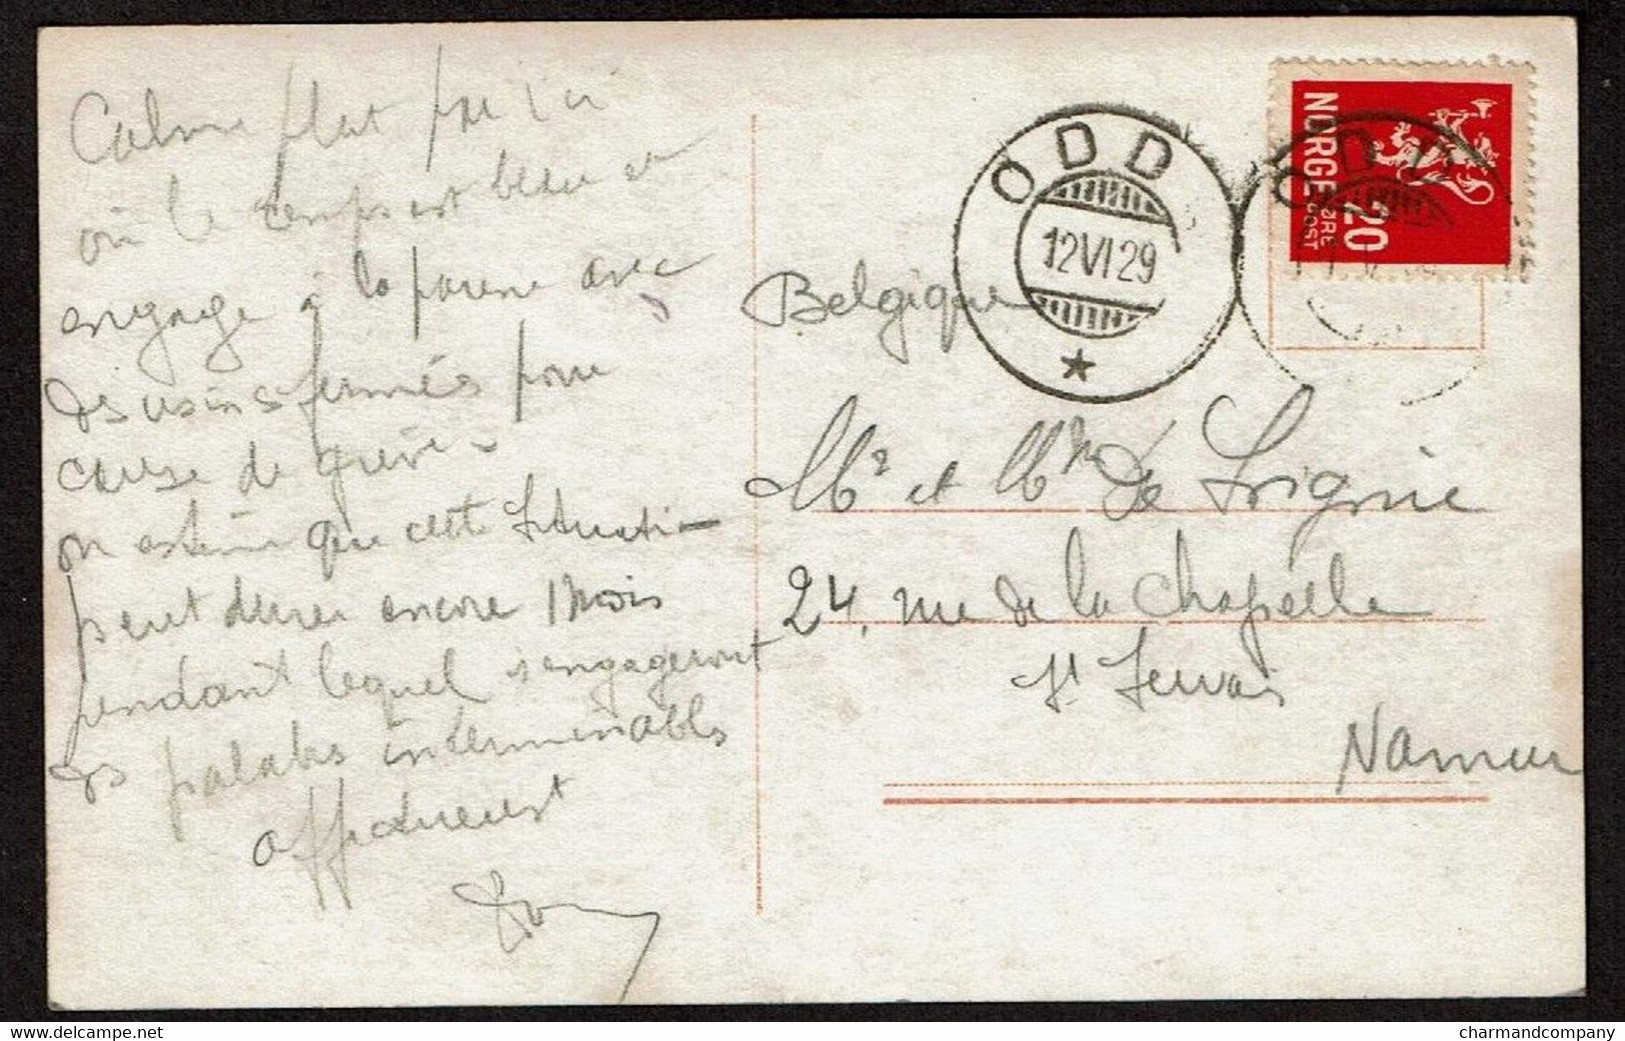 Calme plat par ici
où le temps est beau et
engage à la paresse avec
des usines fermées pour
cause de grève.
on estime que cette situation
peut durer encore 1 mois
pendant lequel s'engageront
des palabres interminables
affectueusement
Belgique
Mr et Mme De
24, rue de la Chapelle
St Servais
Namur
ODD
12 VI 29
*
ODD
NORGE
20
ØRE
POST
delcampe.net
charmandcompany